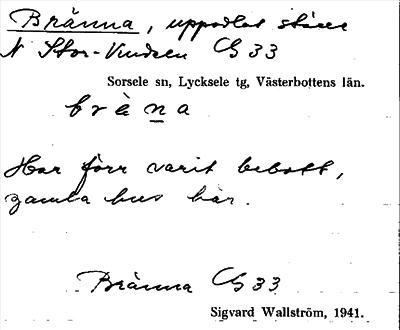 Bränna, uppodlat ställe
N Stor-Vindeln G 33
Sorsele sn, Lycksele tg, Västerbottens län.
brèn̲a
Har förr varit bebott,
gamla hus här.
Bränna G 33
Sigvard Wallström, 1941.